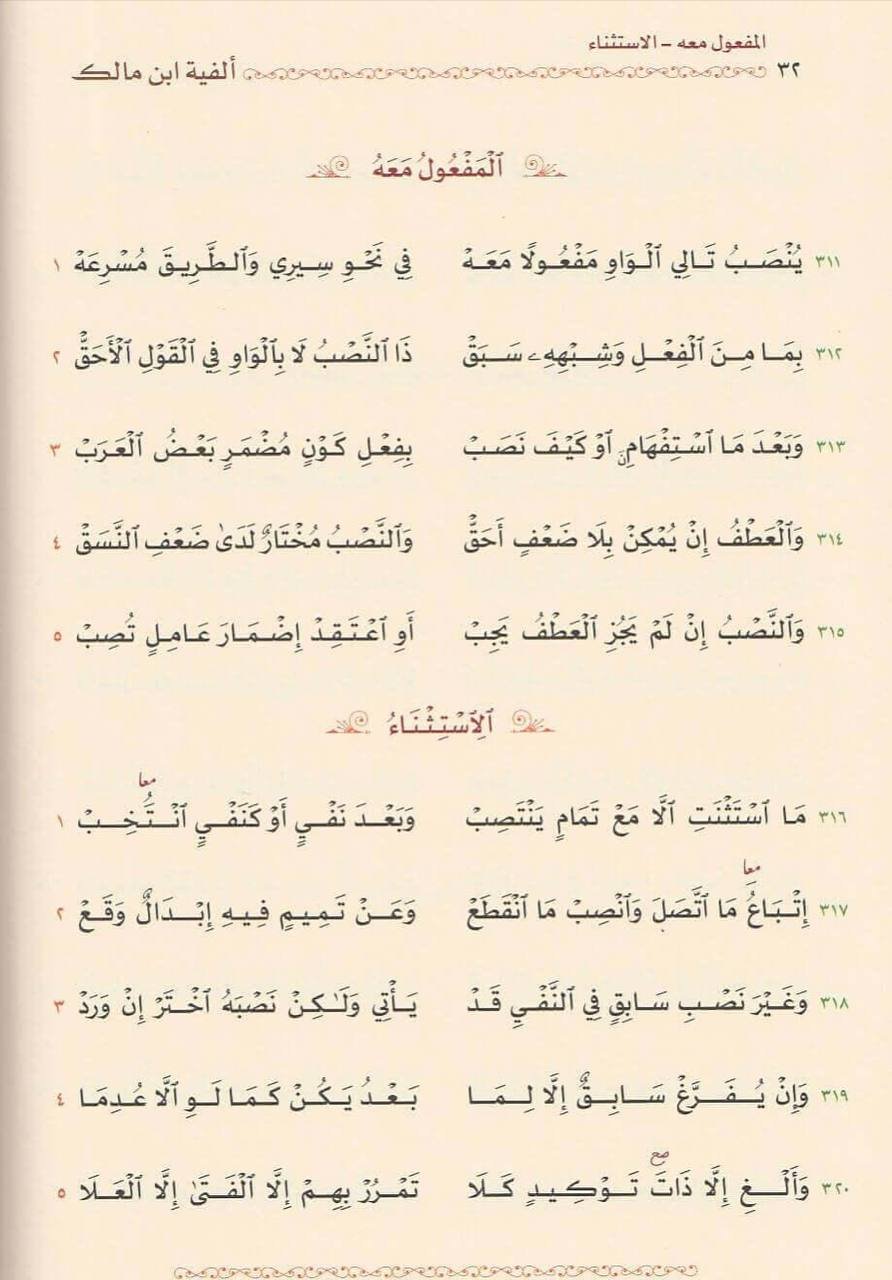 المفعول معه - الاستثناء
٣٢ ألفية ابن مالك
ٱلْمَفْعُولُ مَعَهُ
٣١١ يُنْصَبُ تَالِي ٱلْوَاوِ مَفْعُولًا مَعَهْ فِي نَحْوِ سِيرِي وَٱلطَّرِيقَ مُسْرِعَهْ ١
٣١٢ بِمَا مِنَ ٱلْفِعْلِ وَشِبْهِهِۦ سَبَقْ ذَا ٱلنَّصْبُ لَا بِٱلْوَاوِ فِي ٱلْقَوْلِ ٱلْأَحَقّْ ٢
٣١٣ وَبَعْدَ مَا ٱسْتِفْهَامٍ ٱوْ كَيْفَ نَصَبْ بِفِعْلِ كَوْنٍ مُضْمَرٍ بَعْضُ ٱلْعَرَبْ ٣
٣١٤ وَٱلْعَطْفُ إِنْ يُمْكِنْ بِلَا ضَعْفٍ أَحَقّْ وَٱلنَّصْبُ مُخْتَارٌ لَدَىٰ ضَعْفِ ٱلنَّسَقْ ٤
٣١٥ وَٱلنَّصْبُ إِنْ لَمْ يَجُزِ ٱلْعَطْفُ يَجِبْ أَوِ ٱعْتَقِدْ إِضْمَارَ عَامِلٍ تُصِبْ ٥
ٱلِٱسْتِثْنَاءُ
معا
٣١٦ مَا ٱسْتَثْنَتِ ٱلَّا مَعْ تَمَامٍ يَنْتَصِبْ وَبَعْدَ نَفْيٍ أَوْ كَنَفْيٍ ٱنْتُخِبْ ١
معا
٣١٧ إِتْبَاعُ مَا ٱتَّصَلَ وَٱنْصِبْ مَا ٱنْقَطَعْ وَعَنْ تَمِيمٍ فِيهِ إِبْدَالٌ وَقَعْ ٢
٣١٨ وَغَيْرَ نَصْبِ سَابِقٍ فِي ٱلنَّفْيِ قَدْ يَأْتِي وَلَٰكِنْ نَصْبَهُ ٱخْتَرْ إِنْ وَرَدْ ٣
٣١٩ وَإِنْ يُفَرَّغْ سَابِقٌ إِلَّا لِمَا بَعْدُ يَكُنْ كَمَا لَوِ ٱلَّا عُدِمَا ٤
صح
٣٢٠ وَأَلْغِ إِلَّا ذَاتَ تَوْكِيدٍ كَلَا تَمْرُرْ بِهِمْ إِلَّا ٱلْفَتَىٰ إِلَّا ٱلْعَلَا ٥